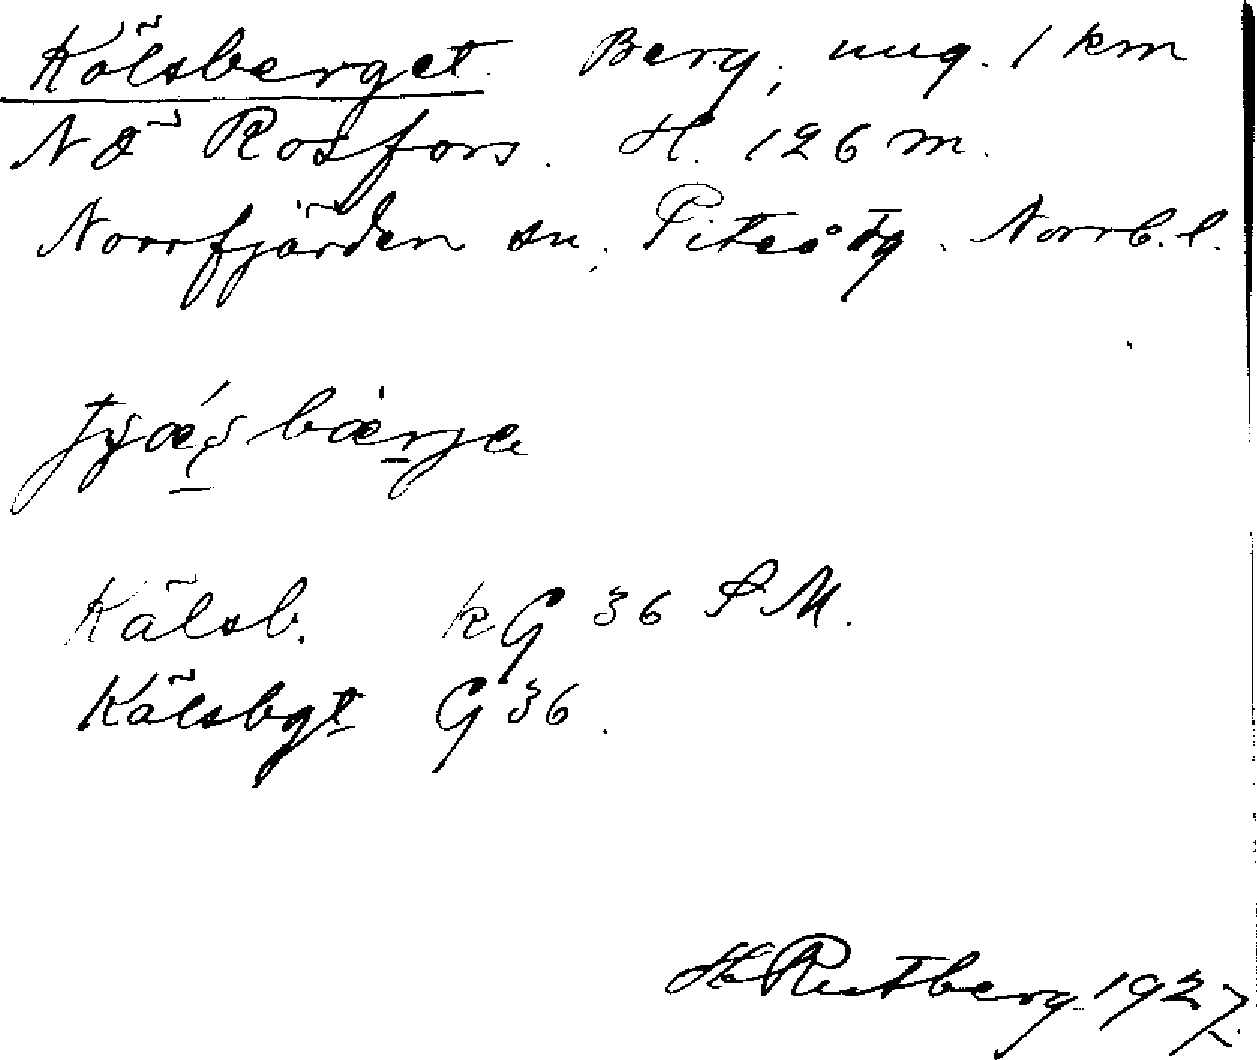 Kälsberget. Berg, ung. 1 km
NÖ Rosfors. H. 126 m.
Norrfjärden sn. Piteå tg. Norrb. l.
bærja
Kälsb. kG 36 S M.
Kälsbgt G 36.
H Rutberg 1927.